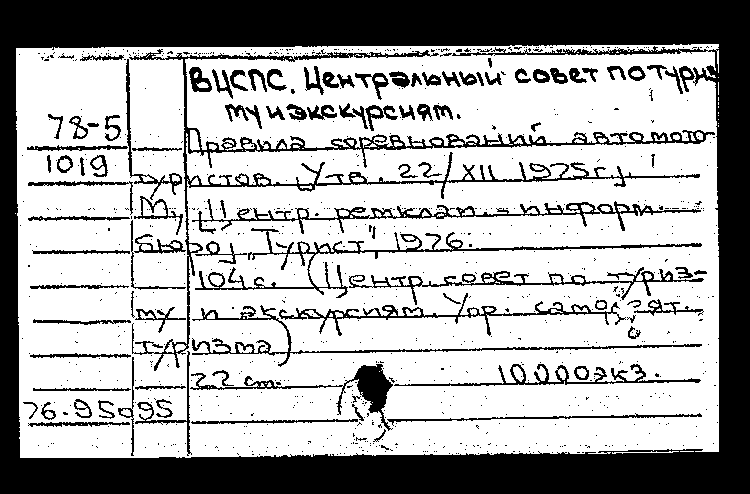 ВЦСПС. Центральный совет по туриз
му и экскурсиям.
78-5
Правила соревнований автомото-
1019
туристов. [Утв. 22/XII 1975 г.].
М., [Центр. рекклам.-информ.
бюро] "Турист", 1976.
104 с. (Центр. совет по туриз-
му и экскурсиям. Упр. самодеят.
туризма)
22 ст. 10000 экз.
76-95095